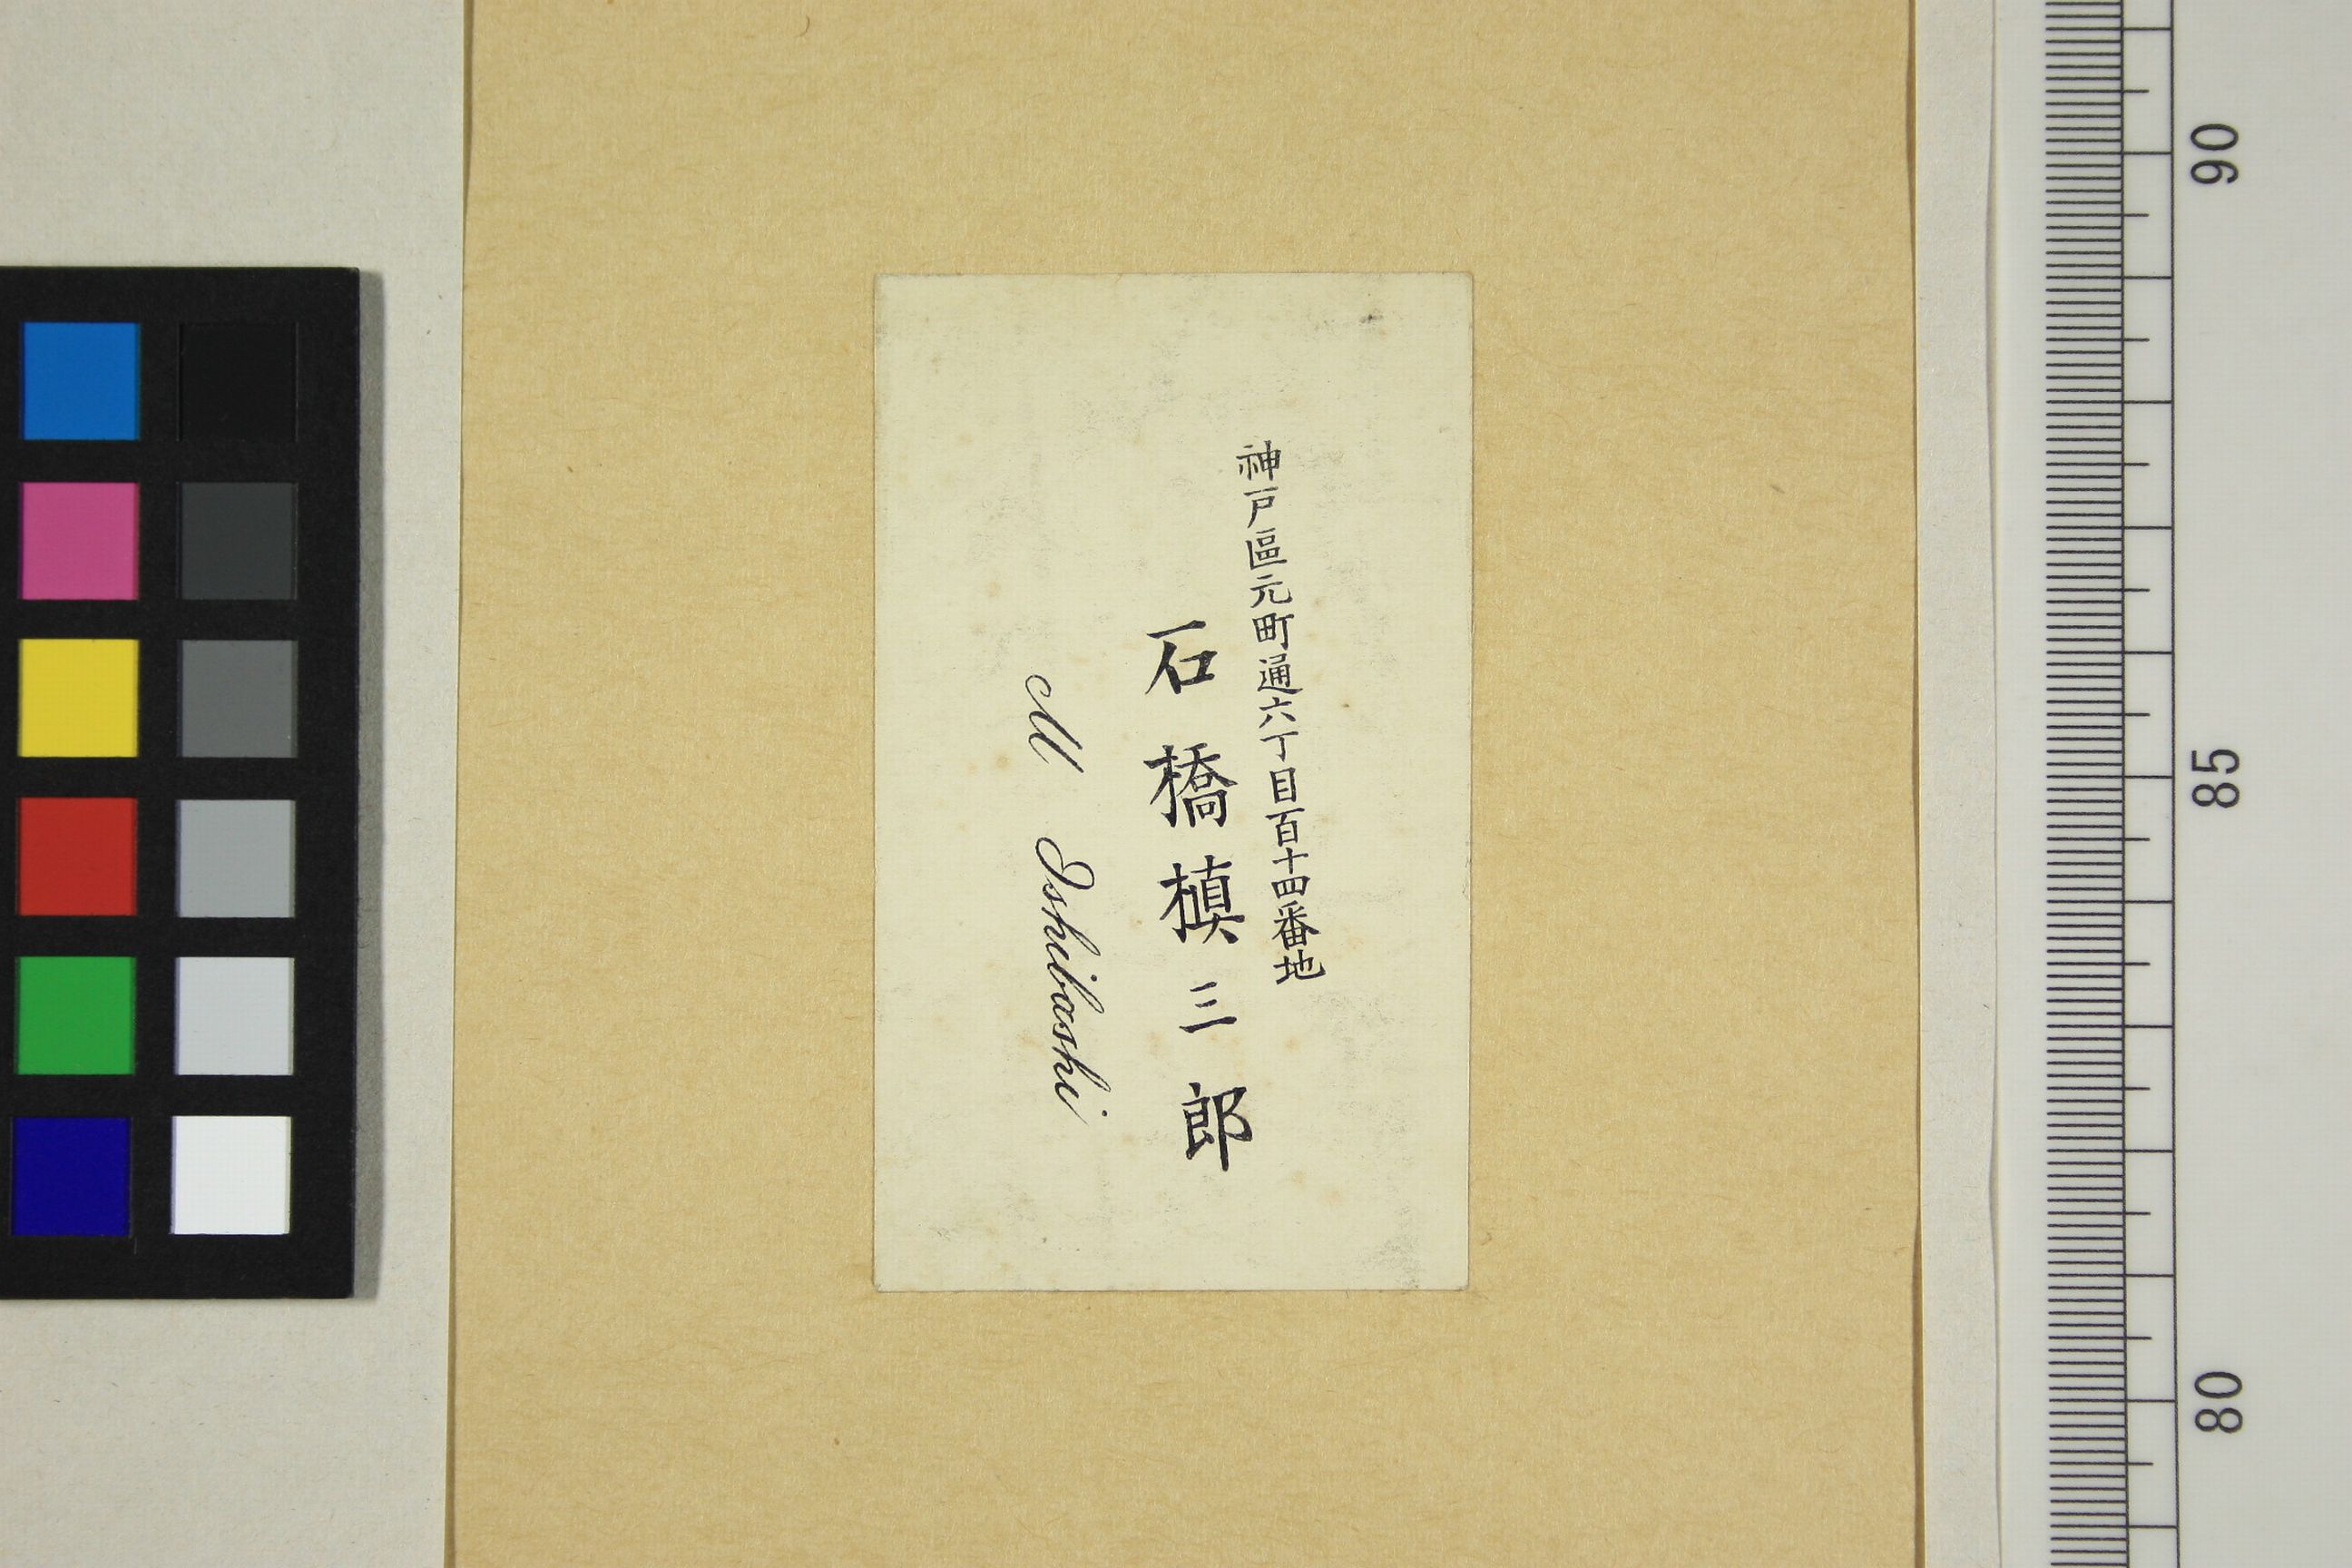 神戸區元町通六丁目百十四番地
石橋槙三郎
M Ishibashi
90
85
80